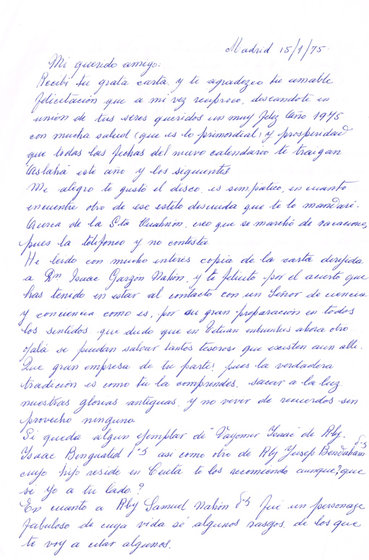 Madrid 15/1/75
Mi querido amigo:
Recibí tu grata carta, y te agradezco tu amable
felicitación que a mi vez reciproco, deseandote en
unión de tus seres queridos un muy feliz Año 1975
con mucha salud (que es lo primordial) y prosperidad
que todas las fechas del nuevo calendario te traigan
este año y los siguientes
Me alegro te gustó el disco, es simpatico, en cuanto
encuentre otro de ese estilo descuida que te lo mandaré.
Acerca de la Sta creo que se marchó de vacaciones,
pues la telefoneo y no contesta
He leido con mucho interes copia de la carta dirigida
a Dn Isaac Garzon Nahón, y te felicito por el acierto que
has tenido en estar al contacto con un Señor de ciencia
y conciencia como es, por su gran preparación en todos
los sentidos, que dudo que en Tetuan entuentres ahora otro
Ojalá se puedan salvar tantos tesoros que existen aun allí.
Que gran empresa de tu parte, pues la verdadera
tradición es como tu la comprendes, sacar a la luz
nuestras glorias antiguas, y no vivir de recuerdos sin
provecho ninguno
Si queda algun ejemplar de "Vayomer Isaac" de Rby
Isaac Bengualid asi como otro de Rby Yusef
cuyo hijo reside en Ceuta te los recomiendo aunque ¿que
se yo a tu lado?
En cuanto a Rby Samuel Nahón fué un personaje
fabuloso de cuya vida sé algunos rasgos, de los que
te voy a citar algunos.